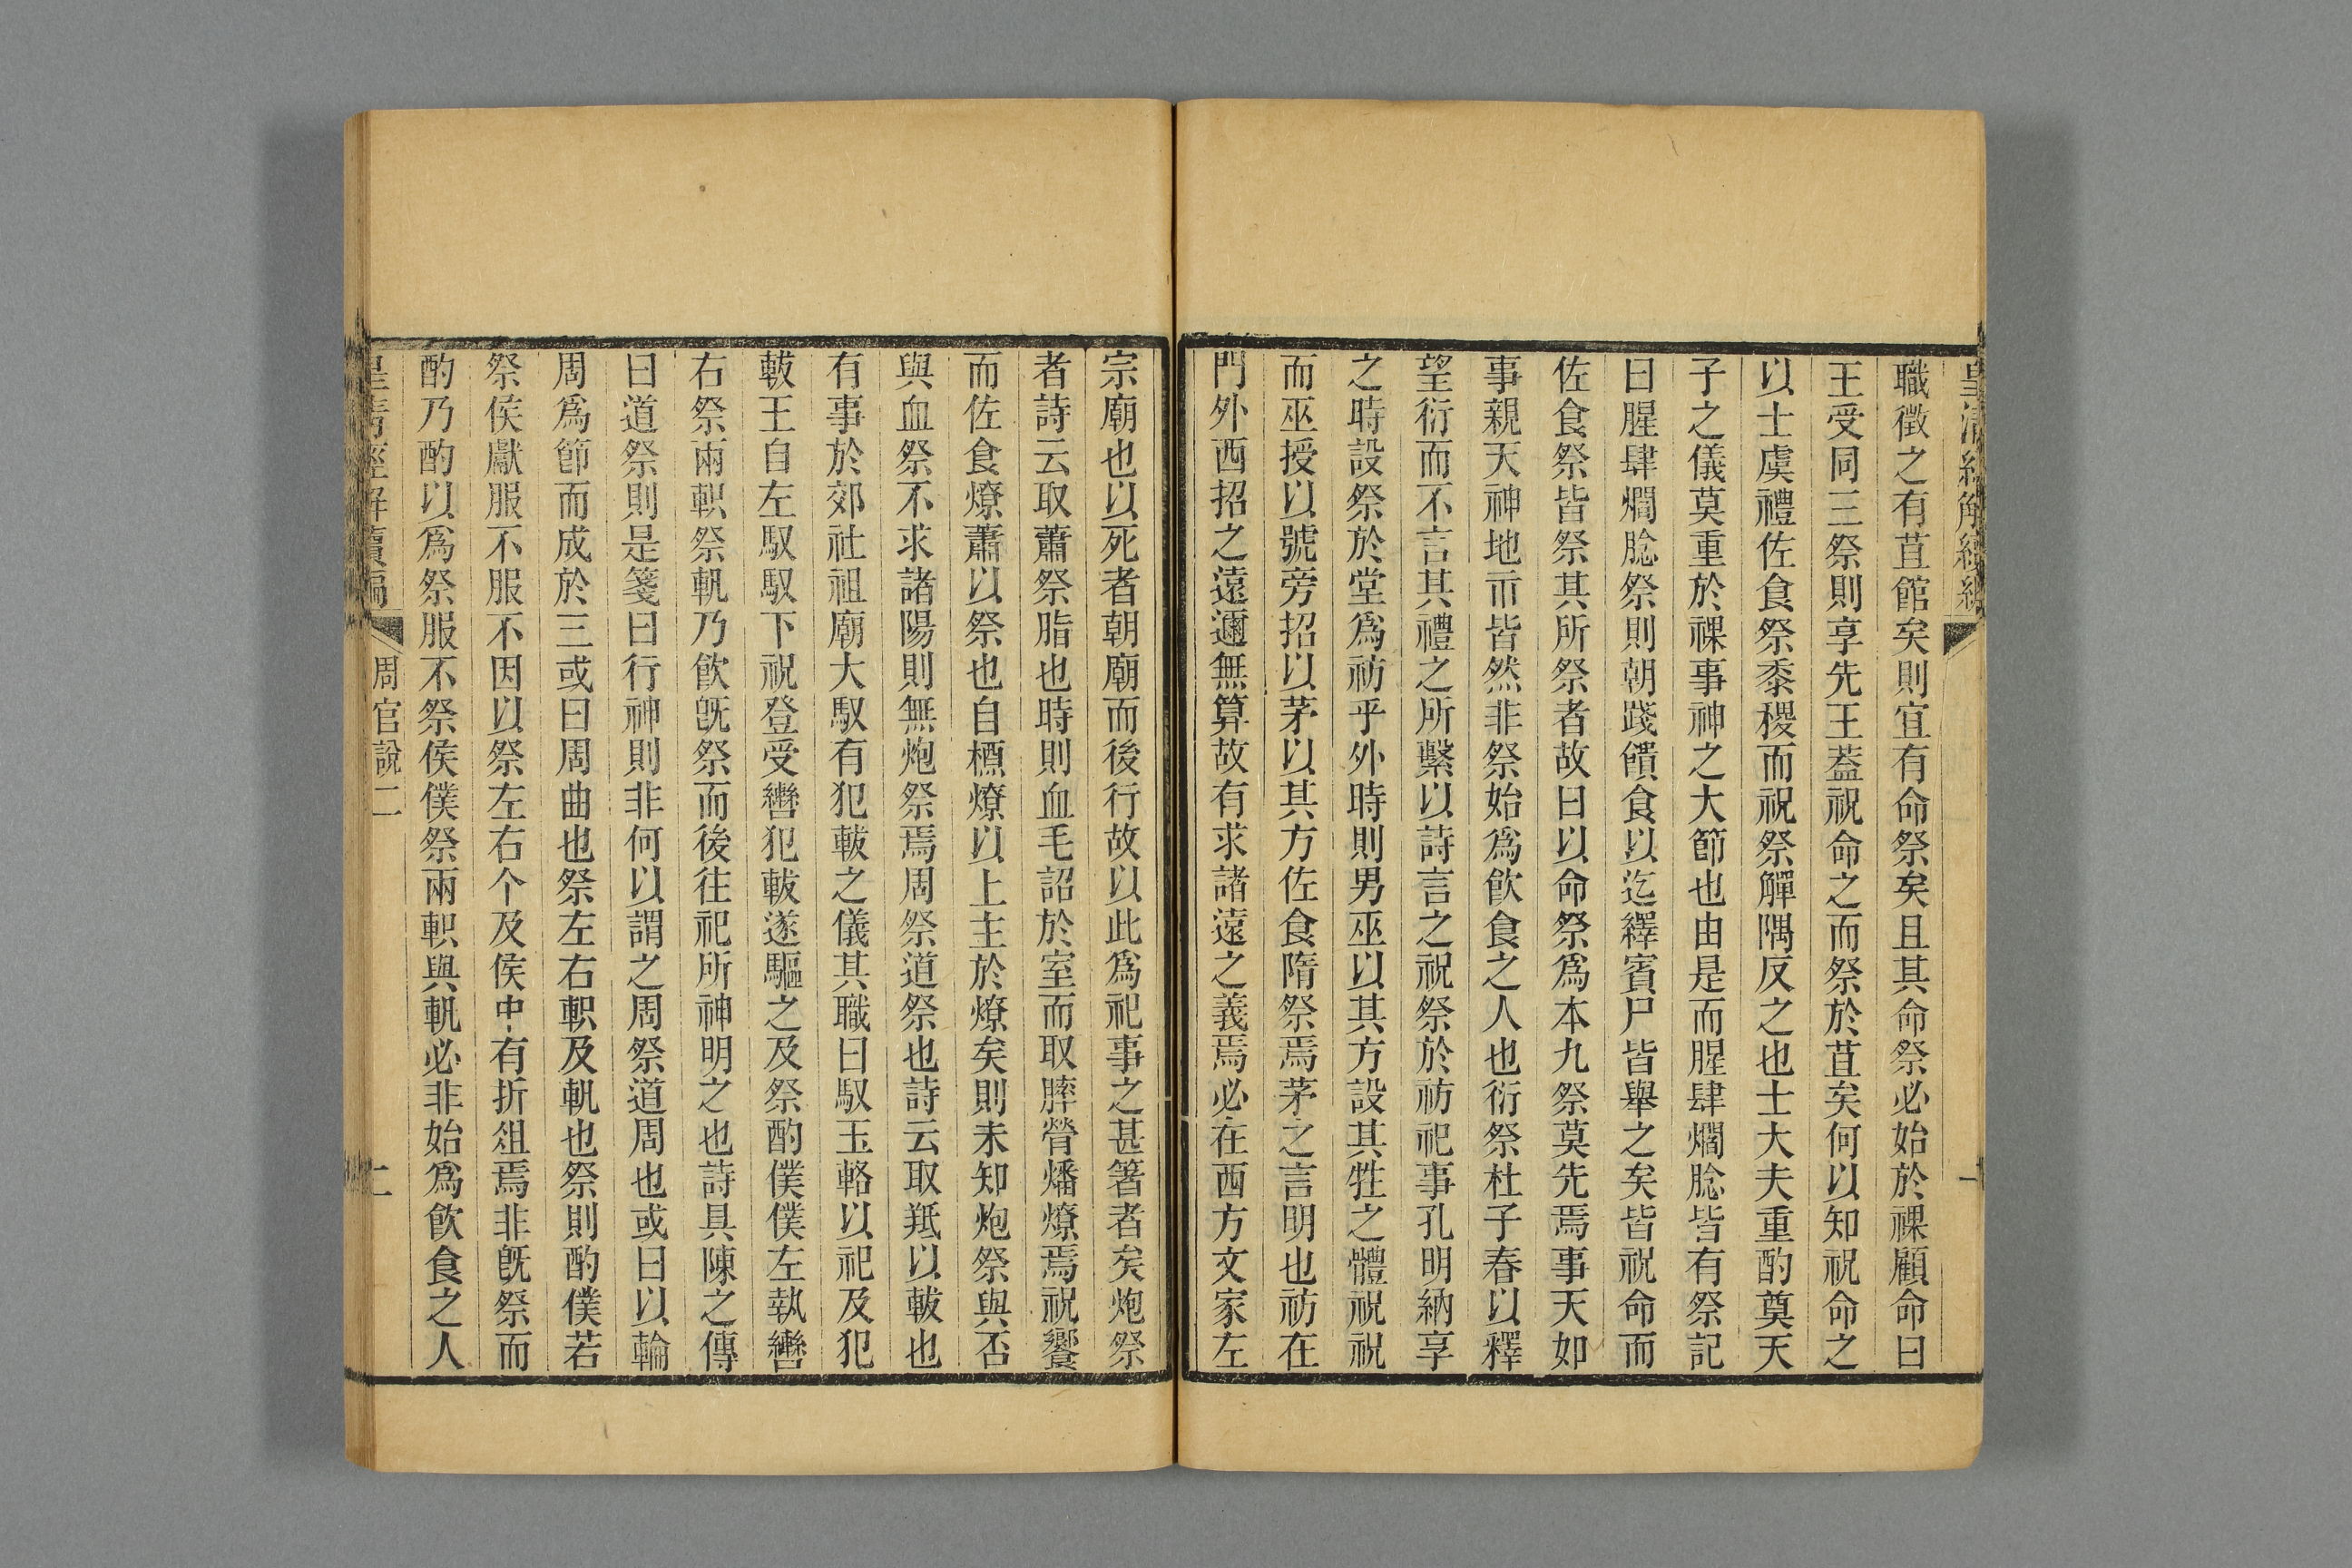 皇清經解續編
一
職徵之有苴館矣則宜有命祭矣且其命祭必始於祼顧命曰
王受同三祭則享先王蓋祝命之而祭於苴矣何以知祝命之
以士虞禮佐食祭黍稷而祝祭觶隅反之也士大夫重酌奠天
子之儀莫重於祼事神之大節也由是而腥肆爓腍皆有祭記
曰腥肆爓腍祭則朝踐饋食以迄繹賓尸皆舉之矣皆祝命而
佐食祭皆祭其所祭者故曰以命祭爲本九祭莫先焉事天如
事親天神地示皆然非祭始爲飮食之人也衍祭杜子春以釋
望衍而不言其禮之所繫以詩言之祝祭於祊祀事孔明納享
之時設祭於堂爲祊乎外時則男巫以其方設其牲之體祝祝
而巫授以號旁招以茅以其方佐食隋祭焉茅之言明也祊在
門外西招之遠邇無算故有求諸遠之義焉必在西方文家左
宗廟也以死者朝廟而後行故以此爲祀事之甚箸者矣炮祭
者詩云取蕭祭脂也時則血毛詔於室而取膟膋燔燎焉祝饗
而佐食燎蕭以祭也自槱燎以上主於燎矣則未知炮祭與否
與血祭不求諸陽則無炮祭焉周祭道祭也詩云取羝以軷也
有事於郊社祖廟大馭有犯軷之儀其職曰馭玉輅以祀及犯
軷王自左馭馭下祝登受轡犯軷遂驅之及祭酌僕僕左執轡
右祭兩軹祭軓乃飮旣祭而後往祀所神明之也詩具陳之傳
曰道祭則是箋曰行神則非何以謂之周祭道周也或曰以輪
周爲節而成於三或曰周曲也祭左右軹及軓也祭則酌僕若
祭侯獻服不服不因以祭左右个及侯中有折俎焉非旣祭而
酌乃酌以爲祭服不祭侯僕祭兩軹與軓必非始爲飮食之人
皇清經解續編
周官說二
二